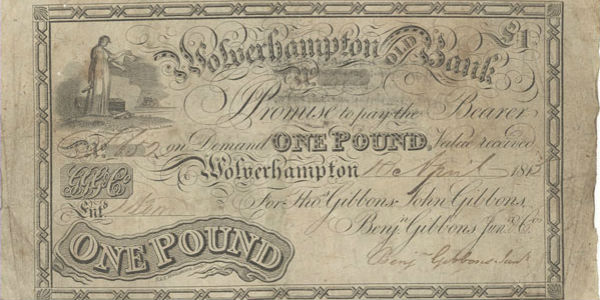 Wolverhampton OLD Bank £1
No
I Promise to pay the Bearer
No on Demand ONE POUND, Value received.
Wolverhampton 10 April 1813
GG&Co For Thos. Gibbons, John Gibbons,
Entd. Benjn. Gibbons Junr. & Co.
ONE POUND
Benjn Gibbons Junr